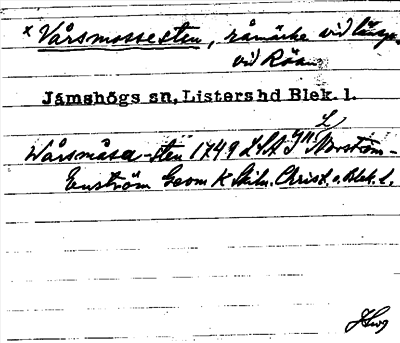 x Vårsmossesten, råmärke vid
vid Röan
Jämshögs sn, Listers hd Blek. l.
Wårsmåsa-sten 1749 LSA
Enström Geom K Skiln. Christ. o. Blek. l.